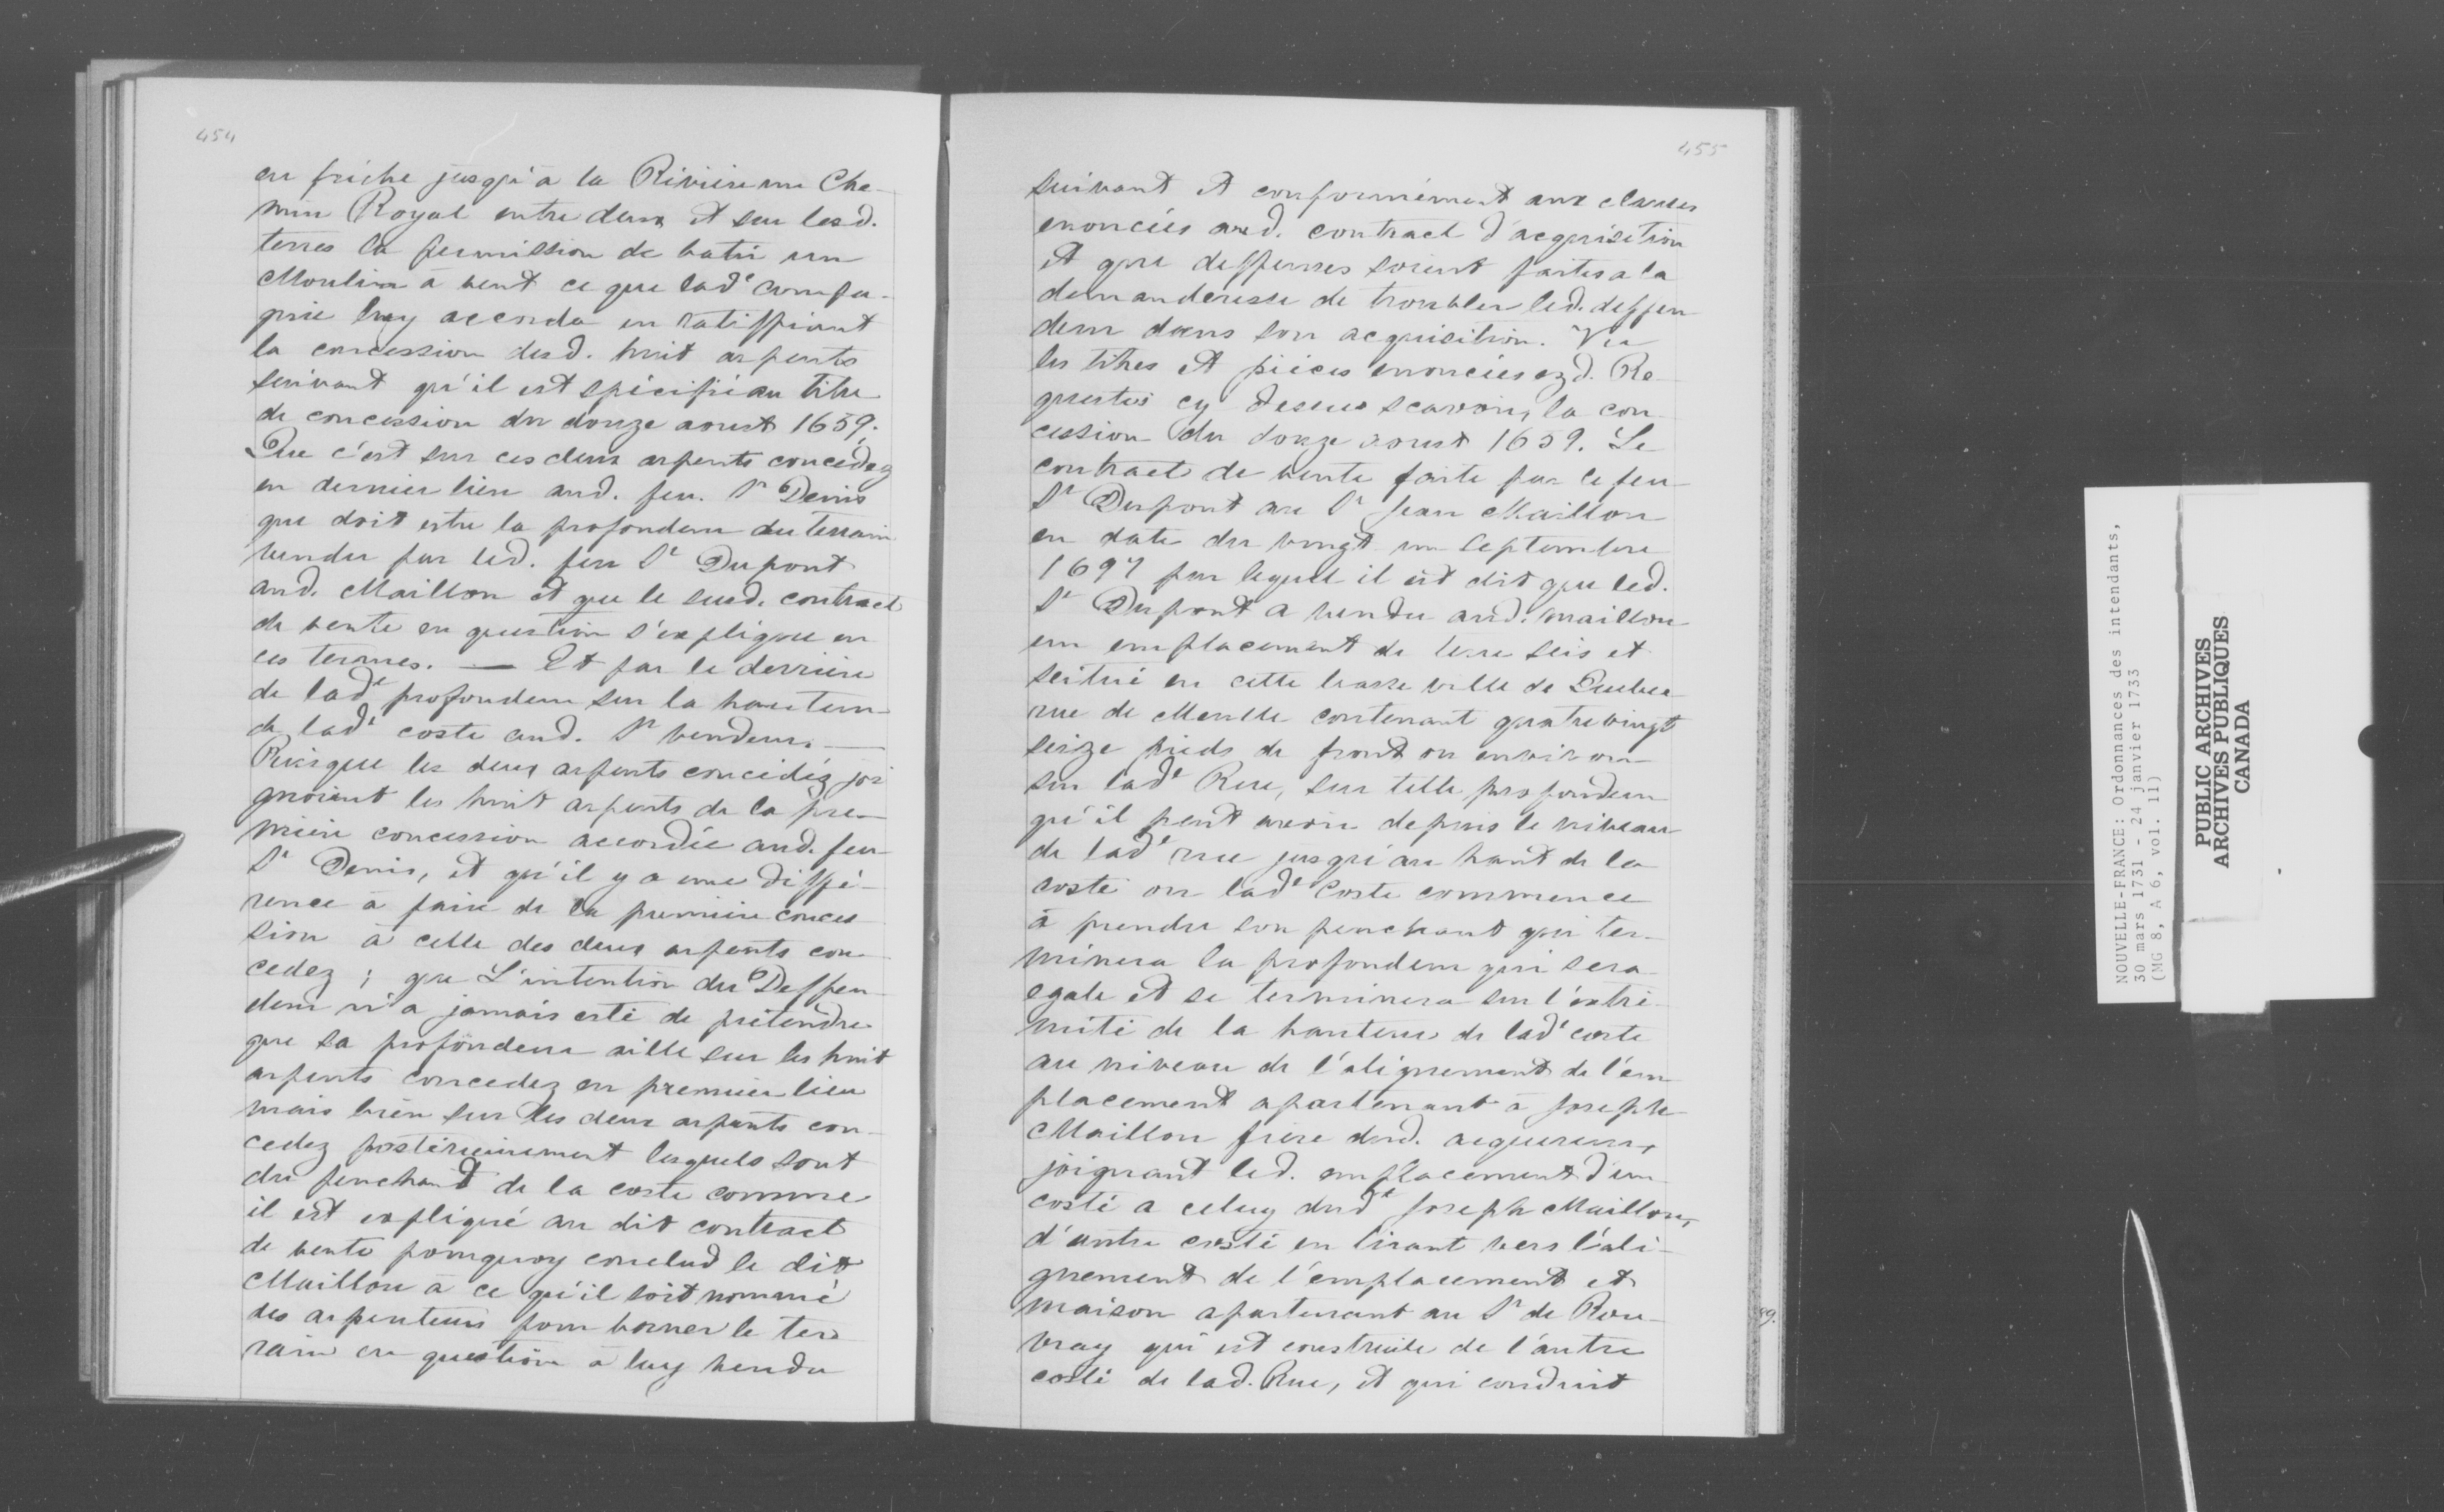 454
en friche jusqu'à la Rivière un Che-
min Royal entre deux et sur lesd.
terres la permission de batir un
Moulin à vent ce que lad.e compa-
gnie luy accorda en ratiffiant
la concession desd. huit arpents
suivant qu'il est spécifié au titre
de concession du douze aoust 1659.
Que c'est sur ces deux arpents concédez
en dernier lieu aud. feu Sr Denis
que doit estre la profondeur du terrain
vendu par led. feu Sr Dupont
aud. Maillou et que le susd. contract
de vente en question s'explique en
ces termes. — Et par le derrière
de lade profondeur sur la hauteur
de lade coste aud. Sr vendeur. —
Puisque les deux arpents concédéz joi
gnoient les huit arpents de la pre-
mière concession accordée aud. feu
Sr Denis, et qu'il y a une diffé-
rence à faire de la première conces
sion à celle des deux arpents con-
cedez; que L'intention du Deffen
deur n'a jamais esté de prétendre
que sa profondeur aille sur les huit
arpents concedez en premier lieu
mais bien sur les deux arpents con-
cedez postérieurement lesquels sont
du penchant de la coste comme
il est expliqué au dit contract
de vente pourquoy conclud le dit
Maillou à ce qu'il soit nommé
des arpenteurs pour borner le ter
rain en question à luy vendu
455
suivant et conformément aux clauses
enoncées aud. contract d'acquisition
et que deffenses soient faites a la
demanderesse de troubler led. deffen
deur dans son acquisition. Vu
les titres et pièces enoncées ezd. Re-
questes cy dessus scavoir, la con
cession du douze aoust 1659. Le
contract de vente faite par le feu
Sr Dupont au Sr Jean Maillou
en date du vingt un Septembre
1697 par lequel il est dit que led.
Sr Dupont a vendu aud. Maillou
un emplacement de terre sis et
scitué en cette basse ville de Quebec
rue de Meulle contenant quatre vingt
seize pieds de front ou environ
sur lade Rue, sur telle profondeur
qu'il peut avoir depuis le niveau
de lade rue jusqu'au haut de la
coste ou lade Coste commence
à prendre son penchant qui ter-
minera la profondeur qui sera
egale et se terminera sur l'extré-
mité de la hauteur de lade coste
au niveau de l'alignement de l'em
placement apartenant à Joseph
Maillou frère dud. acquereur,
joignant led. emplacement d'un
costé a celuy dude Joseph Maillou,
d'autre costé en tirant vers l'ali-
gnement de l'emplacement et
maison apartenant au Sr de Rou-
vray qui est construite de l'autre
costé de lad. Rue, et qui conduit
NOUVELLE-FRANCE: Ordonnances des intendants,
30 mars 1731 - 24 janvier 1733
(MG 8, A 6, vol. 11)
PUBLIC ARCHIVES
ARCHIVES PUBLIQUES
CANADA